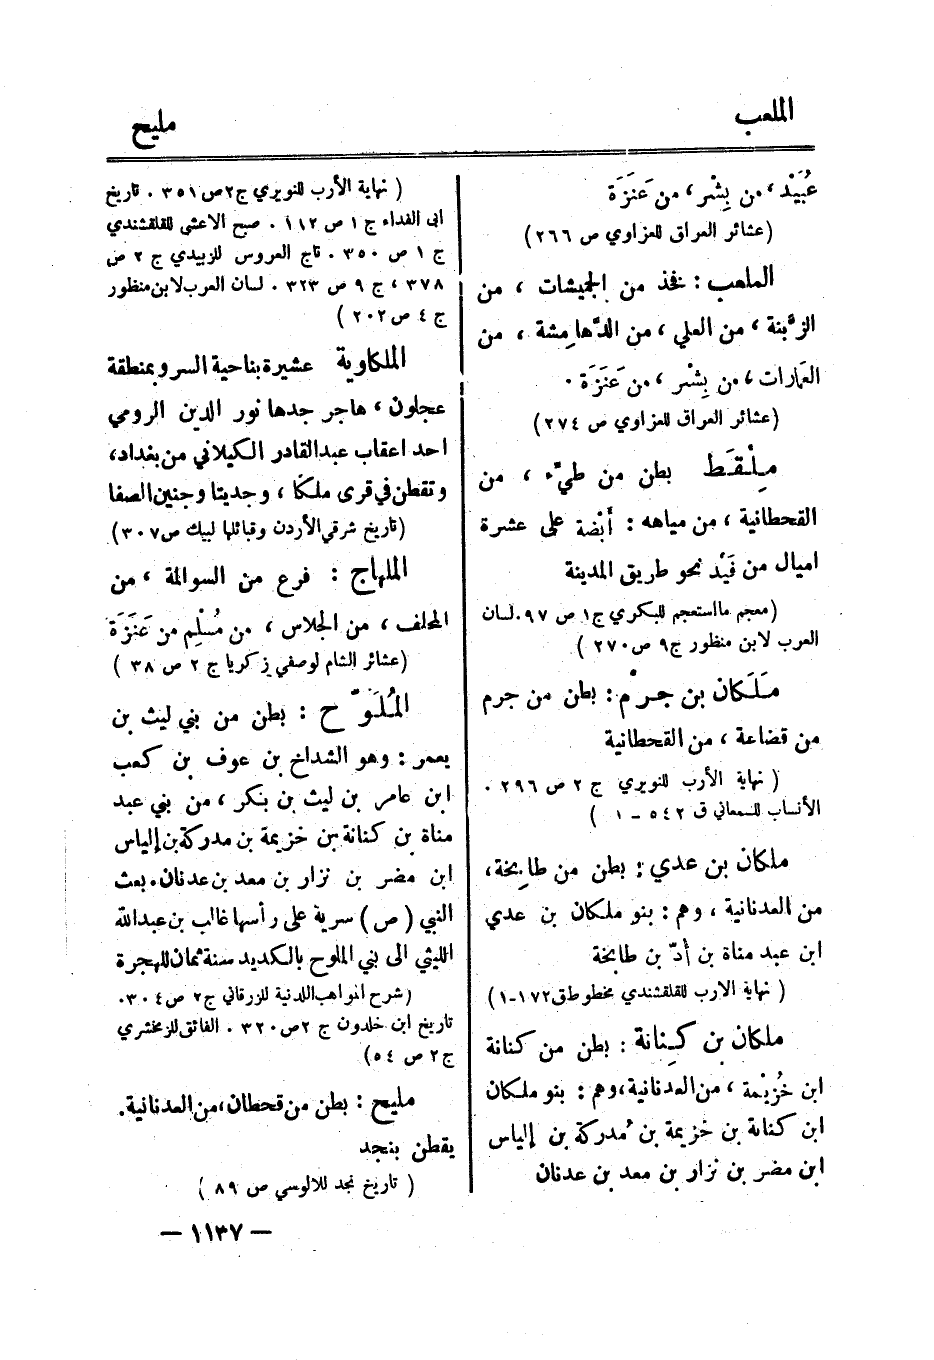 الملعب
مليح
عُبَيْد ، من بِشْر ، من عَنَزَة
(عشائر العراق للعزاوي ص ٢٦٦)
الملعب : فخذ من الجميشات ، من
الزَّبنة ، من العلي ، من الدَّهامشة ، من
العمارات ، من بِشْر ، من عَنَزَة .
(عشائر العراق للعزاوي ص ٢٧٤)
مِلْقَط بطن من طيّء ، من
القحطانية ، من مياهه : أَبْضَة على عشرة
اميال من فَيْد نحو طريق المدينة
(معجم ما استعجم للبكري ج ١ ص ٩٧ . لسان
العرب لابن منظور ج ٩ ص ٢٧٠ )
مَلَكان بن جرْم : بطن من جرم
من قضاعة ، من القحطانية
( نهاية الأرب للنويري ج ٢ ص ٢٩٦ .
الأنساب للسمعاني ق ٥٤٢ – ١ )
ملكان بن عدي : بطن من طابخة ،
من العدنانية ، وهم : بنو ملكان بن عدي
ابن عبد مناة بن أدّ بن طابخة
( نهاية الارب للقلقشندي مخطوط ق ١٧٢-١)
ملكان بن كِنانة : بطن من كنانة
ابن خُزَيْمة ، من العدنانية ، وهم : بنو ملكان
ابن كنانة بن خزيمة بن مُدركة بن إلياس
ابن مضر بن نزار بن معد بن عدنان
( نهاية الأرب للنويري ج ٢ ص ٣٥١ . تاريخ
ابى الفداء ج ١ ص ١١٢ . صبح الاعشى للقلقشندي
ج ١ ص ٣٥٠ . تاج العروس للزبيدي ج ٢ ص
٣٧٨ ، ج ٩ ص ٣٢٣ . لسان العرب لابن منظور
ج ٤ ص ٢٠٢ )
الملكاوية عشيرة بناحية السرو بمنطقة
عجلون ، هاجر جدها نور الدين الرومي
احد اعقاب عبد القادر الكيلاني من بغداد ،
وتقطن في قرى ملكا ، وجديتا وجنين الصفا
(تاريخ شرقي الأردن وقبائلها لبيك ص ٣٠٧)
الملهاج : فرع من السوالمة ، من
المحلف ، من الجلاس ، من مُسْلِم من عَنَزَة
(عشائر الشام لوصفي زكريا ج ٢ ص ٣٨ )
المُلَوّح : بطن من بني ليث بن
يعمر : وهو الشداخ بن عوف بن كعب
ابن عامر بن ليث بن بنكر ، من بني عبد
مناة بن كنانة بن خزيمة بن مدركة بن إلياس
ابن مضر بن نزار بن معد بن عدنان . بعث
النبي ( ص ) سرية على رأسها غالب بن عبد الله
الليثي الى بني الملوح بالكديد سنة ثمان للهجرة
(شرح المواهب اللدنية للزرقاني ج ٢ ص ٣٠٤ .
تاريخ ابن خلدون ج ٢ ص ٣٢٠ . الفائق للزمخشري
ج ٢ ص ٥٤)
مليح : بطن من قحطان ، من العدنانية .
يقطن بنجد
( تاريخ نجد للالوسي ص ٨٩ )
– ١١٣٧ –